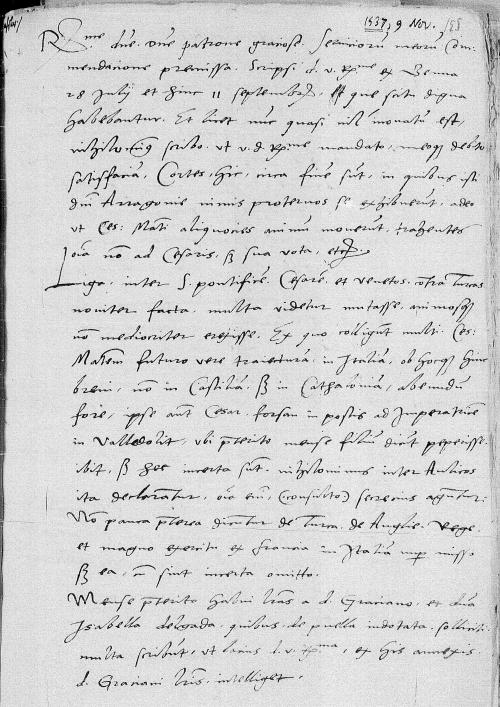 1537, 9 Nov.
R.me dne. dne patrone graiose. Servicioru meoru com
mendacione premissa. Scripsi d. v. R.me ex
28 Julij et hinc 11 septembr. que scitu digna
habebantur. Et licet nunc quasi nil inovatu est,
nihilo scribo. vt v. d. R.me mandato, meoq debito
satisfacia, Cortes, hic, circa fine sunt, in quibus isti
dni Arragonie nimis protervos se exhibuerut, adeo
vt Ces: Matem aliquocies animu moverut. trahentes
oia no ad Cesaris, sz sua vota, etc.
Liga, inter S. pontifice. Cesare, et venetos. contra Turcas
noviter facta. multa videtur mutasse. animosqz
no mediocriter erexisse. Ex quo colligunt multi Ces:
Matem futuro vere traiectura. in Italia, ob hocqz hinc
brevi, no in Castilia. sz in Cathalonia, abeundu
fore, ipse aut Cesar. forsan in postis ad Imperatrice
in Valledolit, vbi preterito mense filiu dicut peperisse
ibit, sz hec incerta sunt. nihilominus inter Aulicos
ita declaratur. oia eni, (consulto) secrecius aguntur:
No pauca preterea dicuntur de Turca. de Anglie. Rege.
et magno exercitu ex francia in Italia nuper misso
sz ea, cu sint incerta omitto.
Mense preterito habui lras a d. Graciano, et dna
Isabella delgada, quibus. de puella indotata. solliciti
multa scribut, vt lacius d. v. R.ma, ex his annexis
d. Graciani lris. intelliget.